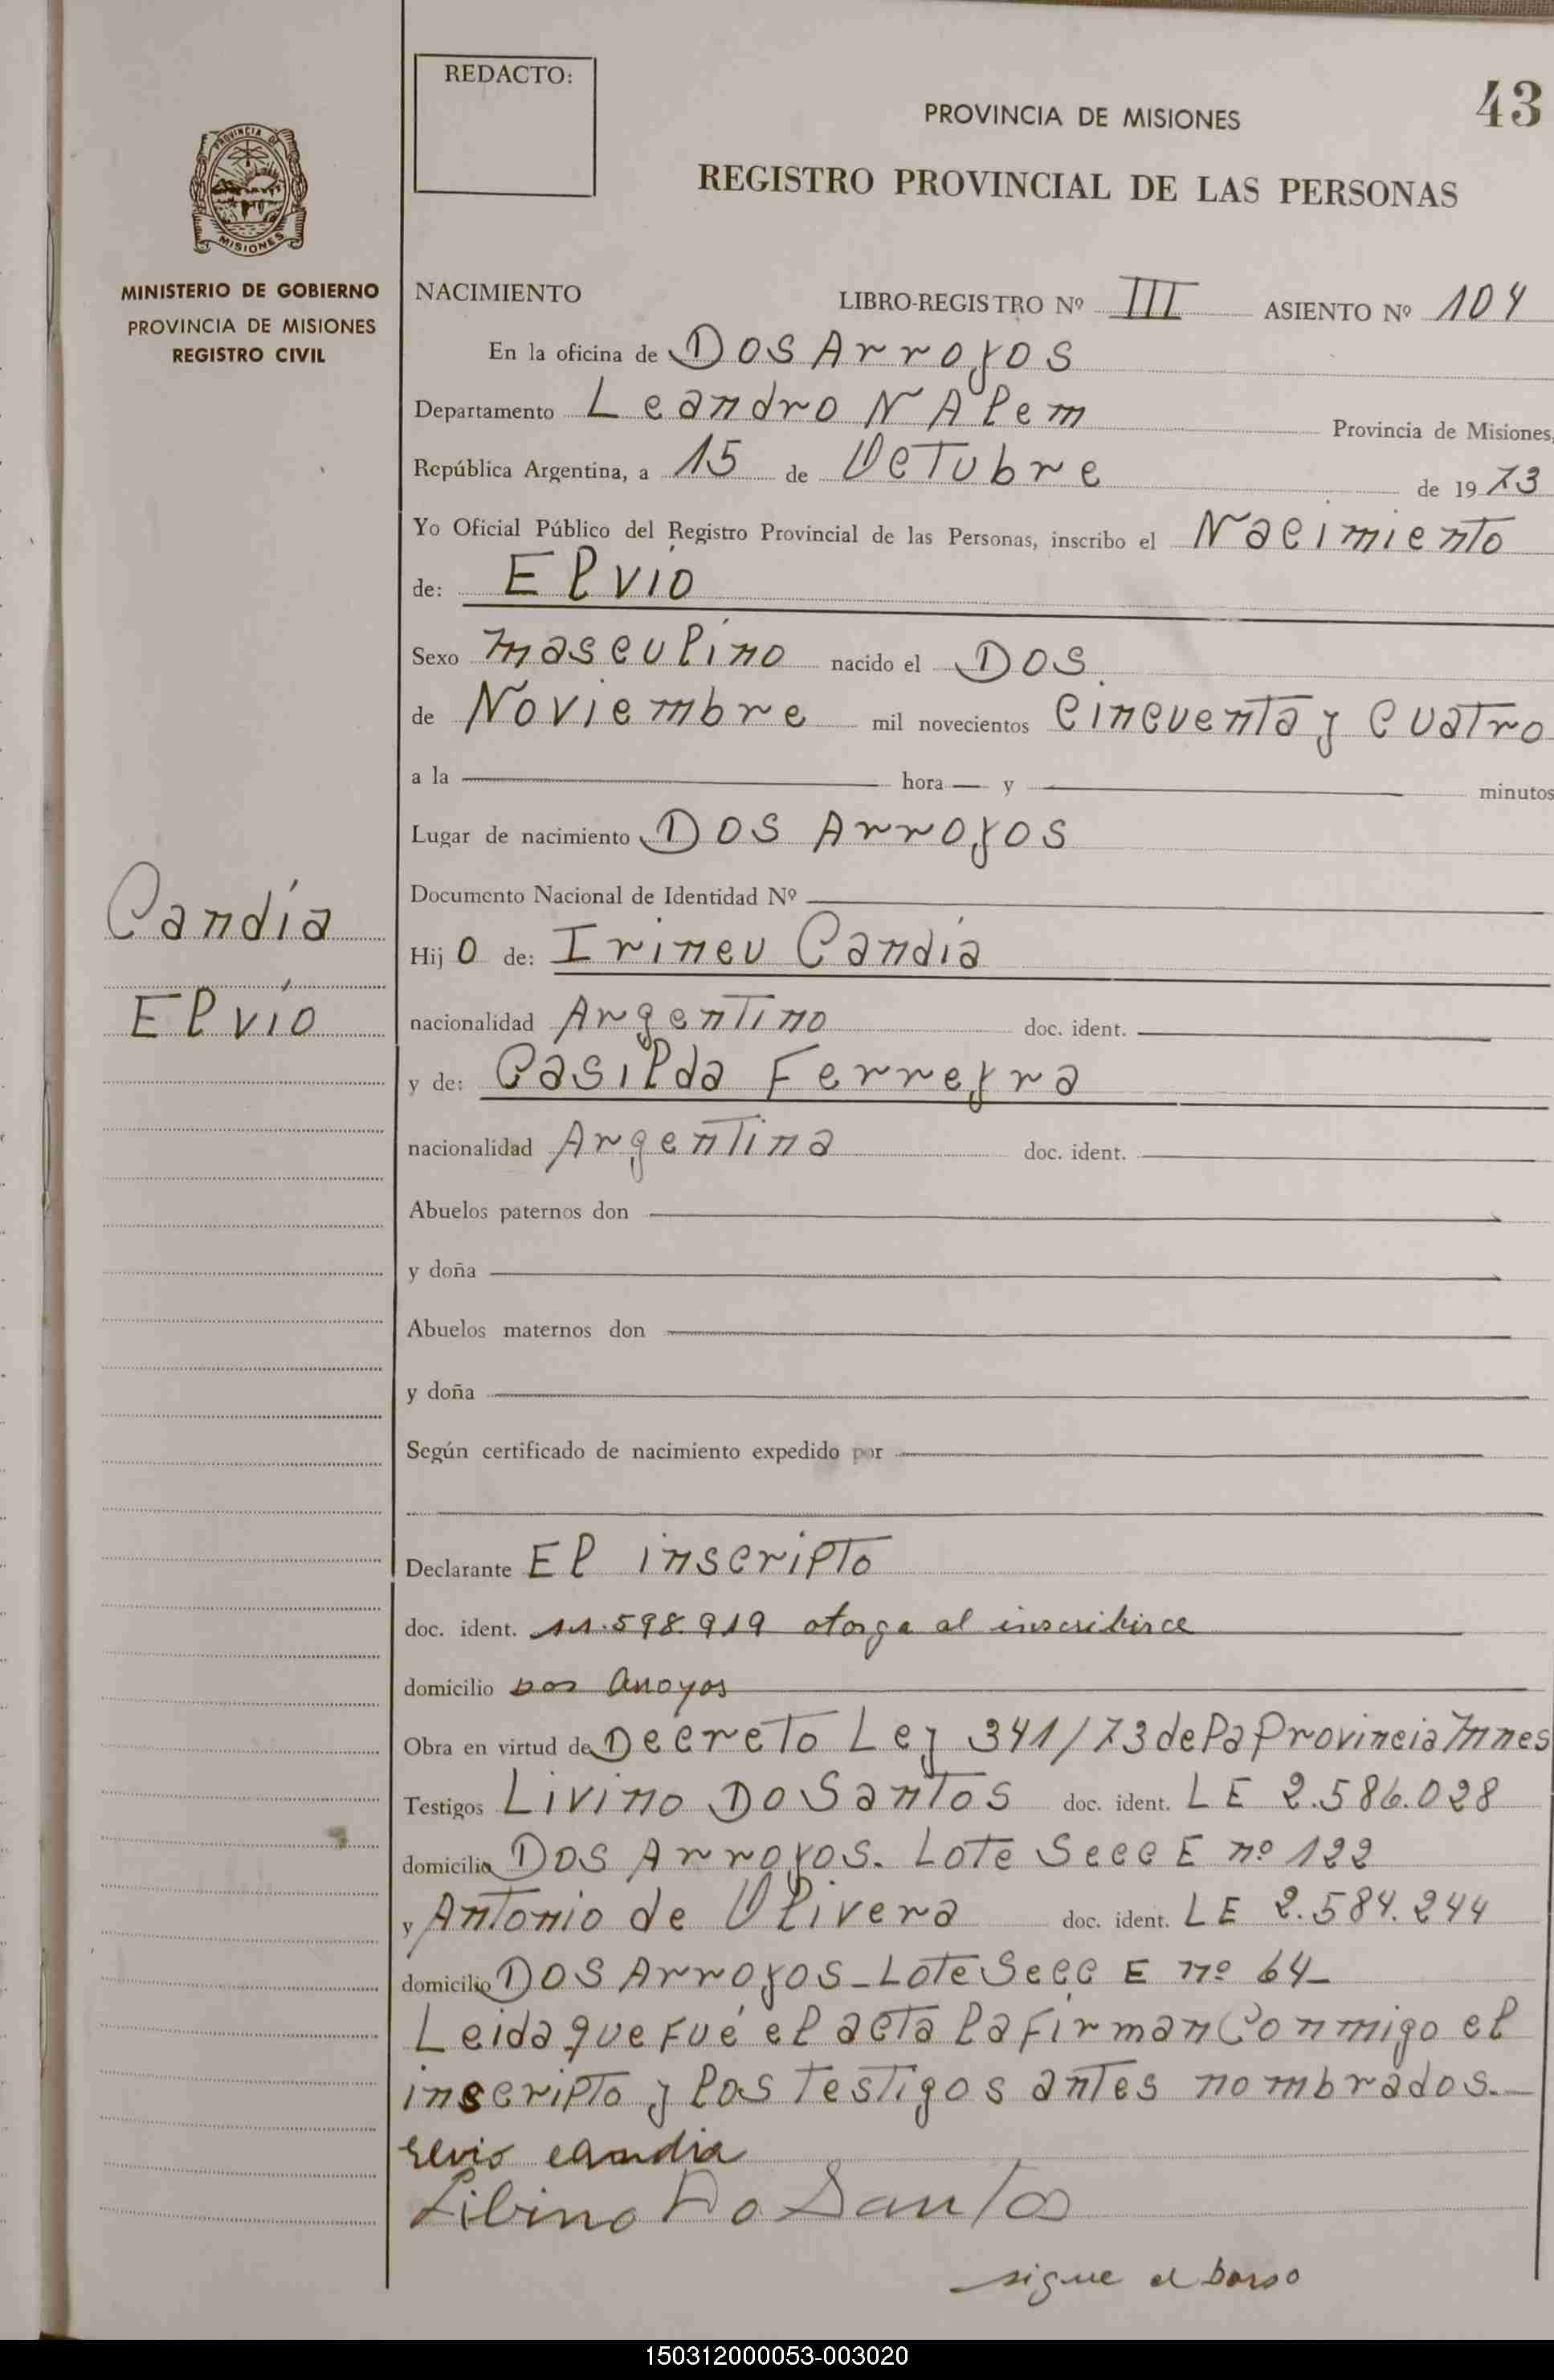 REDACTO:
43
PROVINCIA DE MISIONES
REGISTRO PROVINCIAL DE LAS PERSONAS
PROVINCIA DE
MISIONES
MINISTERIO DE GOBIERNO
PROVINCIA DE MISIONES
REGISTRO CIVIL
NACIMIENTO LIBRO-REGISTRO Nº III ASIENTO Nº 104
En la oficina de Dos Arroyos
Departamento Leandro N Alem Provincia de Misiones,
República Argentina, a 15 de Octubre de 1973
Yo Oficial Público del Registro Provincial de las Personas, inscribo el Nacimiento
de: Elvio
Sexo masculino nacido el Dos
de Noviembre mil novecientos Cincuenta y Cuatro
a la hora y minutos
Lugar de nacimiento Dos Arroyos
Documento Nacional de Identidad Nº
Candia
Elvio
Hijo de: Irineu Candia
nacionalidad Argentino doc. ident.
y de: Casilda Ferreyra
nacionalidad Argentina doc. ident.
Abuelos paternos don
y doña
Abuelos maternos don
y doña
Según certificado de nacimiento expedido por
Declarante El inscripto
doc. ident. 11.598.919 otorga al inscribirce
domicilio Dos Arroyos
Obra en virtud de Decreto Ley 341/73 de la Provincia Mnes
Testigos Livino Do Santos doc. ident. LE 2.586.028
domicilio Dos Arroyos. Lote Secc E nº 122
y Antonio de Olivera doc. ident. LE 2.584.244
domicilio Dos Arroyos - Lote Secc E nº 64 -
Leida que fué el acta la firman Conmigo el
inscripto y los testigos antes nombrados.-
elvio candia
Libino Do Santos
sigue al borso
150312000053-003020